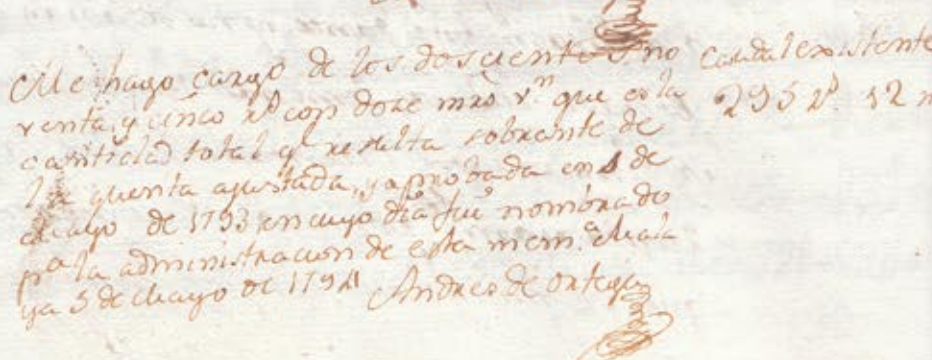 Me hago cargo de los doscientos no
venta, y cinco rs con doze mrs vn que es la
cantidad total q resulta sobrante de
la quenta ajustada, y aprobada en 5 de
Mayo de 1793 en cuyo dia fui nombrado
pa la administracion de esta mema Mala
ga 5 de Mayo de 1794 Andres de Ortega
Caudal existente
295 rs. 12 m